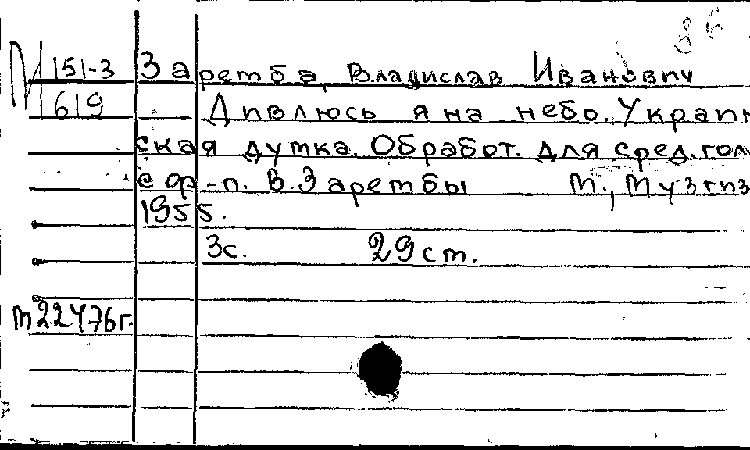 М 151-3 Заремба, Владислав Иванович
619 Дивлюсь я на небо. Украин
ская думка. Обработ. для сред. гол
с фр-п. В. Зарембы М., Музгиз
1955.
3с. 29 ст.